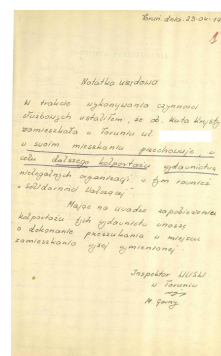 Toruń, dnia. 23-04-19
1
Notatka urzędowa
W trakcie wykonywania czynności
służbowych ustaliłem, że ob. Kuta Krysty
zamieszkała w Toruniu ul.
w swoim mieszkaniu przechowuje, w
celu dalszego kolportażu wydawnictwa
nielegalnych organizacji w tym również
"Solidarności Walczącej"
Mając na uwadze zapobieżenie
kolportażu tych wydawnictw wnoszę
o dokonanie przeszukania w miejscu
zamieszkania wyżej wymienionej
Inspektor WUSW
w Toruniu
M.